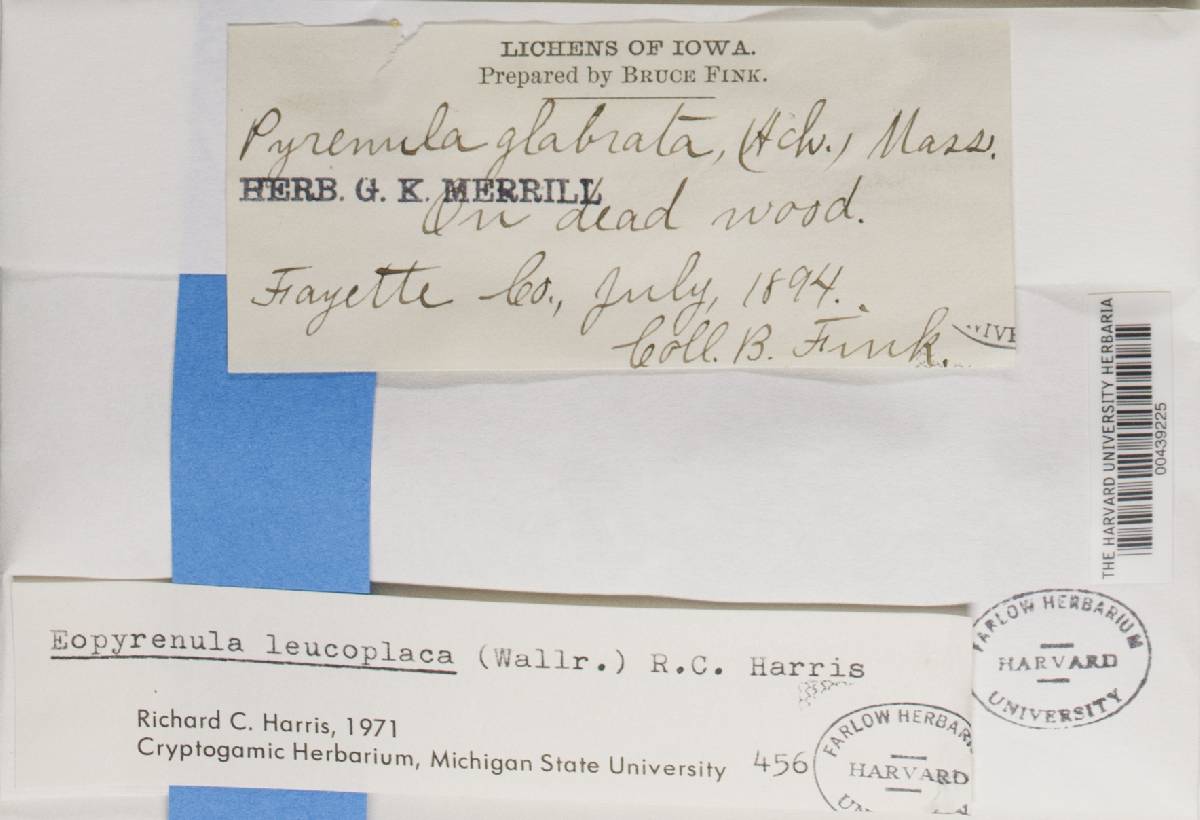 LICHENS OF IOWA.
Prepared by BRUCE FINK.
Pyrenula glabrata, (Ach.) Mass.
HERB. G. K. MERRILL
On dead wood.
Fayette Co., July, 1894.
Coll. B. Fink.
IVE
THE HARVARD UNIVERSITY HERBARIA
00439225
FARLOW HERBARIUM
HARVARD
UNIVERSITY
Eopyrenula leucoplaca (Wallr.) R.C. Harris
Richard C. Harris, 1971
Cryptogamic Herbarium, Michigan State University
456
FARLOW HERBAR
HARVARD
UN